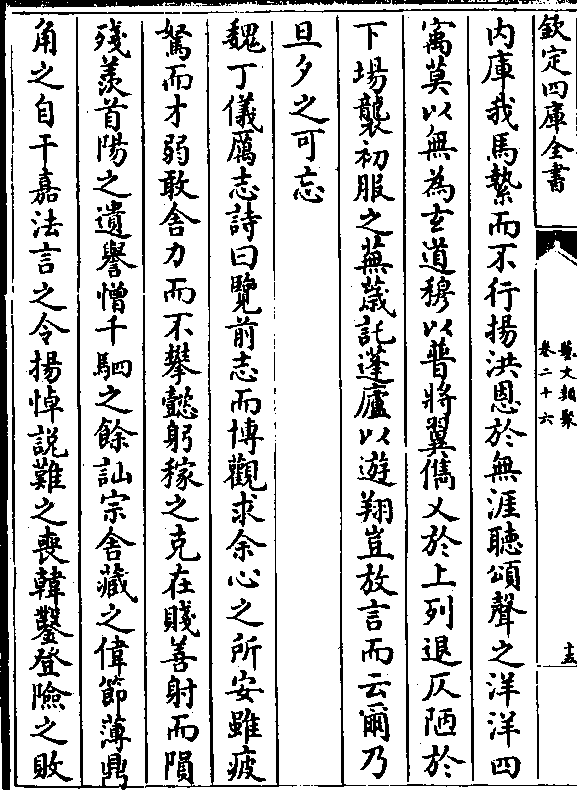 欽定四庫全書
藝文類聚
卷二十六
十五
内庫我馬縶而不行揚洪恩於無涯聽頌聲之洋洋四
寓莫以無為玄道穆以普將翼儁乂於上列退仄陋於
下場襲初服之蕪薉託蓬廬以遊翔豈放言而云爾乃
旦夕之可忘
魏丁儀厲志詩曰覽前志而博觀求余心之所安雖疲
駑而才弱敢舍力而不攀懿躬稼之克在賤善射而隕
殘羨首陽之遺譽憎千駟之餘訕宗舍藏之偉節薄鼎
角之自干嘉法言之令揚悼説難之喪韓鑿登險之敗